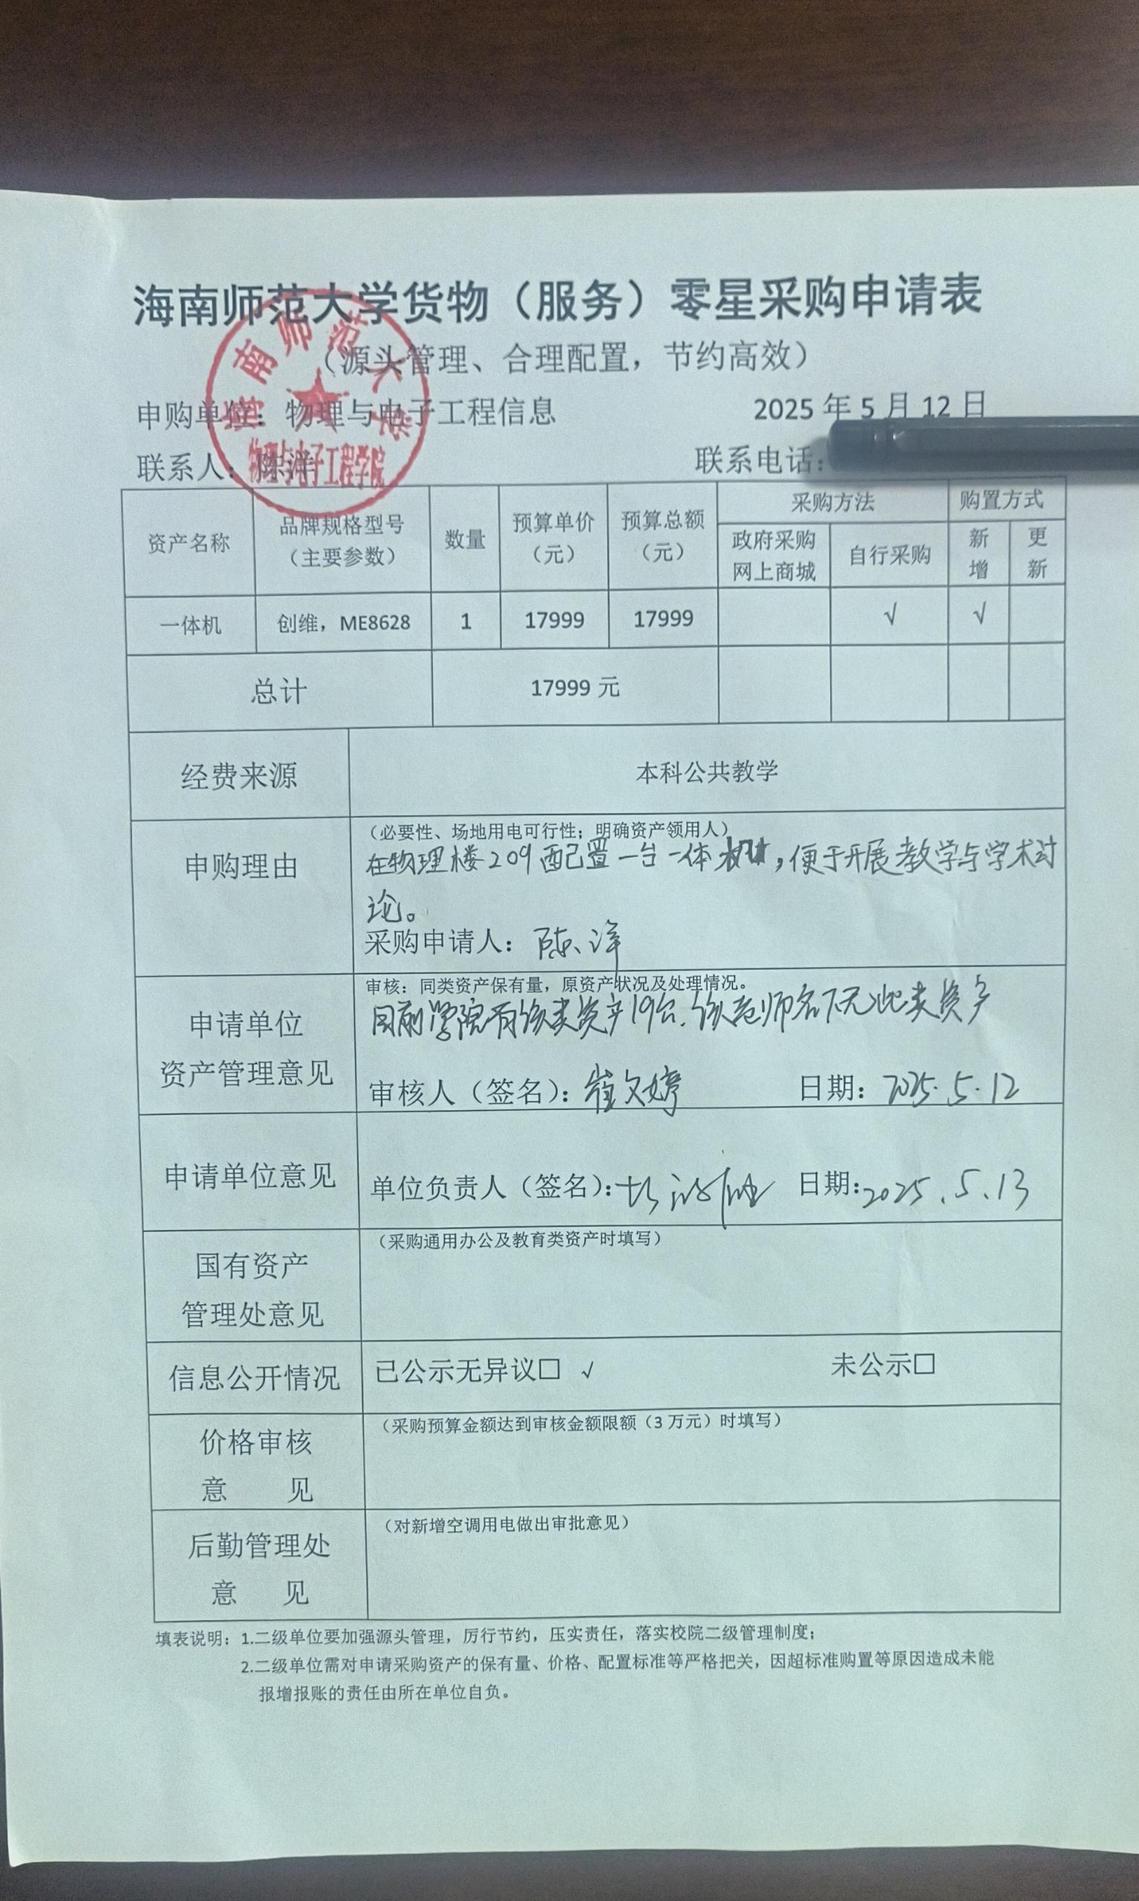 海南师范大学货物（服务）零星采购申请表
（源头管理、合理配置，节约高效）
海南师范大学
物理与电子工程学院
申购单位：物理与电子工程信息
2025 年 5 月 12 日
联系人：陈洋
联系电话：
资产名称
品牌规格型号
（主要参数）
数量
预算单价
（元）
预算总额
（元）
采购方法
政府采购
网上商城
自行采购
购置方式
新
增
更
新
一体机
创维，ME8628
1
17999
17999
√
√
总计
17999 元
经费来源
本科公共教学
申购理由
（必要性、场地用电可行性；明确资产领用人）
在物理楼209配置一台一体机，便于开展教学与学术讨
论。
采购申请人：陈洋
申请单位
资产管理意见
审核：同类资产保有量，原资产状况及处理情况。
目前学院有该类资产19台，该老师名下无此类资产
审核人（签名）：崔文婷
日期：2025.5.12
申请单位意见
单位负责人（签名）：
日期：2025.5.13
国有资产
管理处意见
（采购通用办公及教育类资产时填写）
信息公开情况
已公示无异议□ √
未公示□
价格审核
意 见
（采购预算金额达到审核金额限额（3 万元）时填写）
后勤管理处
意 见
（对新增空调用电做出审批意见）
填表说明：1.二级单位要加强源头管理，厉行节约，压实责任，落实校院二级管理制度；
2.二级单位需对申请采购资产的保有量、价格、配置标准等严格把关，因超标准购置等原因造成未能
报增报账的责任由所在单位自负。